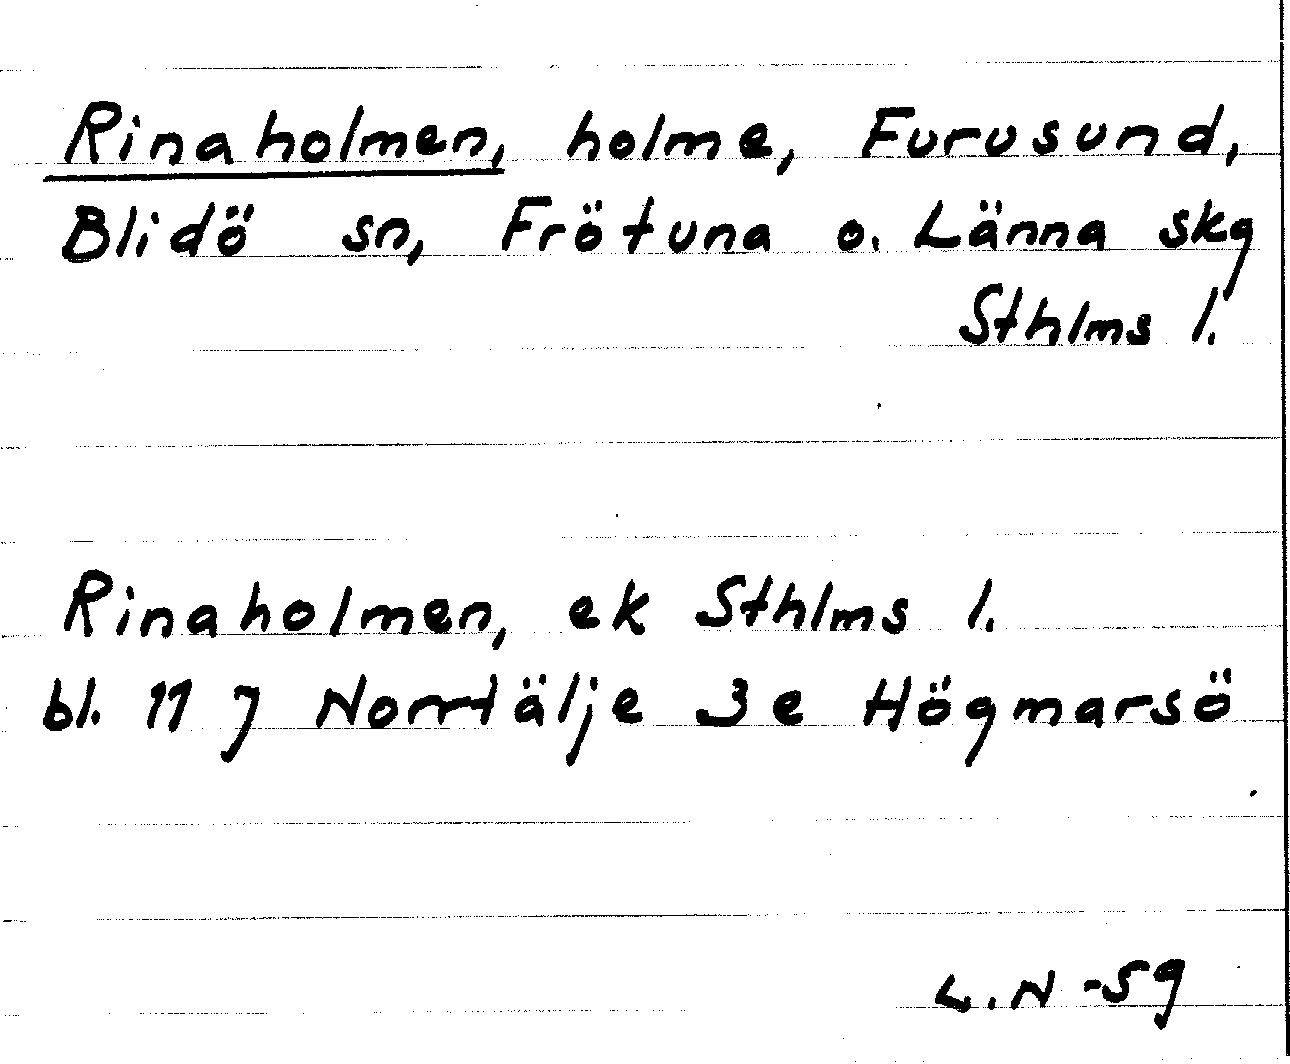 Rinaholmen, holme, Furusund,
Blidö sn, Frötuna o. Länna skg
Sthlms l.
Rinaholmen, ek Sthlms l.
bl. 11 J Norrtälje 3e Högmarsö
L.N -59